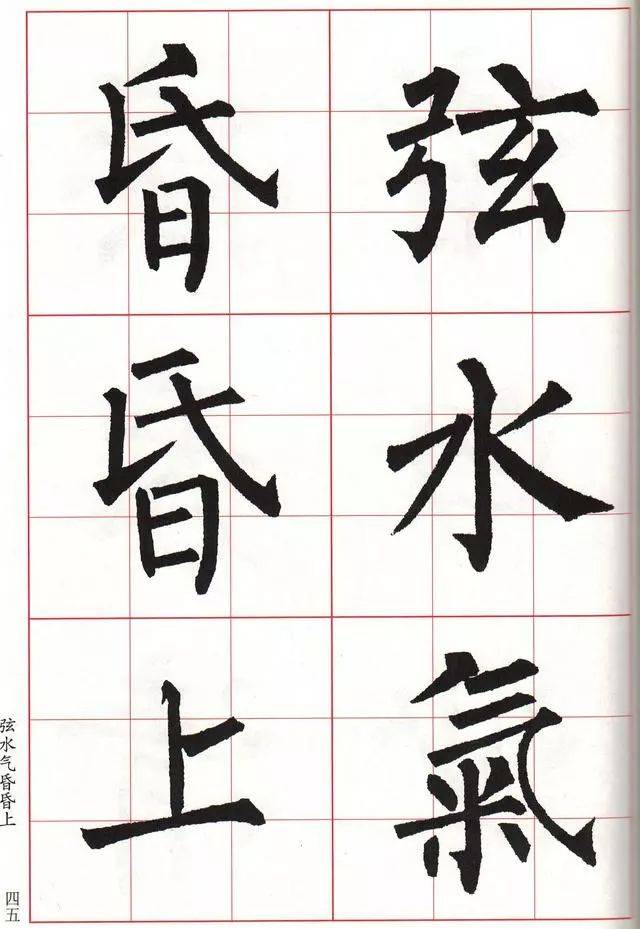 弦水氣
昏昏上
弦水气昏昏上
四五